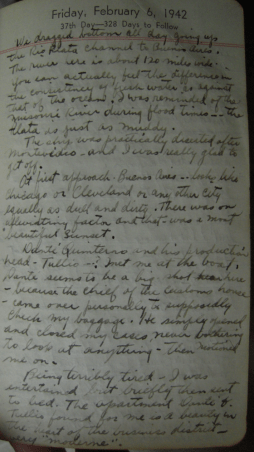 Friday, February 6, 1942
37th Day—328 Days to Follow
We dragged bottom all day going up
the Rio Plata channel to Buenos Aires.
The river here is about 120 miles wide.
You can actually feel the difference in
the consistency of fresh water as against
that of the ocean. I was reminded of the
Missouri River during flood times — the
Plata is just as muddy.
The ship was practically deserted after
Montevideo — and I was really glad to
get off.
At first approach Buenos Aires looks like
Chicago or Cleveland or any other city
equally as dull and dirty. There was one
alleviating factor and that was a most
beautiful sunset.
Dante Quinterno and his production
head — Tulio — met me at the boat.
Dante seems to be a big shot
— because the chief of the Customs house
came over personally to supposedly
check my baggage. He simply opened
and closed my cases, never bothering
to look at anything — then
me on.
Being terribly tired — I was
entertained but briefly then sent
to bed. The apartment Dante &
Tulio found for me is a beauty in
the heart of the business district —
very "moderne".